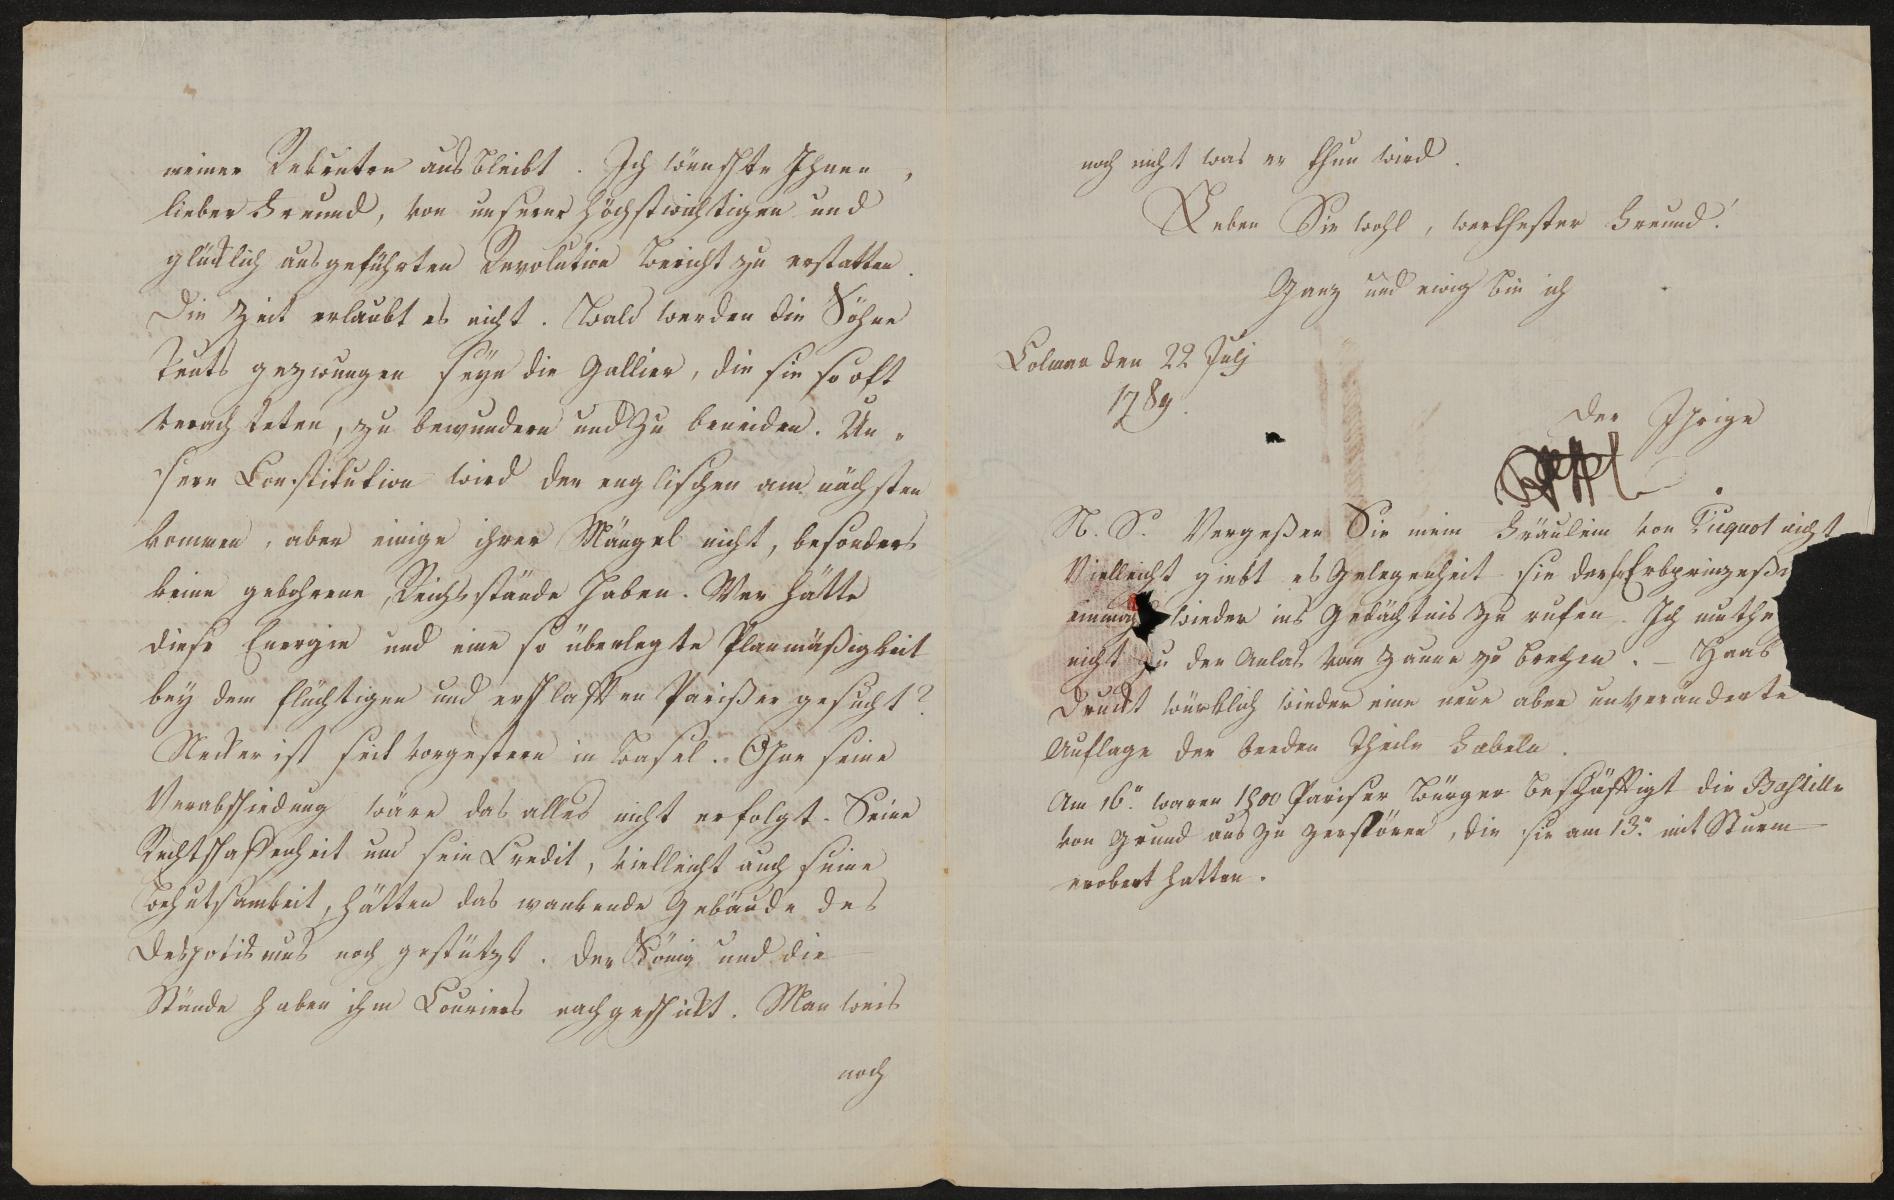 meiner Rekruten ausbleibt. Ich wünschte Ihnen,
lieber Freund, von unserer höchstwichtigen und
glücklich ausgeführten Revolution Bericht zu erstatten.
Die Zeit erlaubt es nicht. Bald werden die Söhne
Teuts gezwungen seyn die Gallier, die sie so oft
verachteten, zu bewundern und zu beneiden. Un-
sere Constitution wird der englischen am nächsten
kommen, aber einige ihrer Mängel nicht, besonders
keine gebohrene Reichsstände haben. Wer hätte
diese Energie und eine so überlegte Planmäßigkeit
bey dem flüchtigen und erschlafften Pariser gesucht?
Necker ist seit vorgestern in Basel. Ohne seine
Verabschiedung wäre das alles nicht erfolgt. Seine
Rechtschaffenheit und sein Credit, vielleicht auch seine
Behutsamkeit, hätten das wankende Gebäude des
Despotismus noch gestützt. Der König und die
Stände haben ihm Couriers nachgeschickt. Man weis
noch
noch nicht was er thun wird.
Leben Sie wohl, werthester Freund!
Ganz und ewig bin ich
Colmar den 22 Julj
1789.
Der Ihrige
Pfeffel
N. S. Vergeßen Sie mein Fräulein von Picquot nicht
Vielleicht giebt es Gelegenheit sie der Erbprinzeß
einmahl wieder ins Gedächtnis zu rufen. Ich muthe
nicht zu den Anlas vom Zaune zu brechen. – Haas
Druckt würklich wieder eine neue aber unveränderte
Auflage der beeden Theile Fabeln.
Am 16n. waren 1500 Pariser Bürger beschäftigt die Bastille
von Grund aus zu zerstören, die sie am 13n. mit Sturm
erobert hatten.